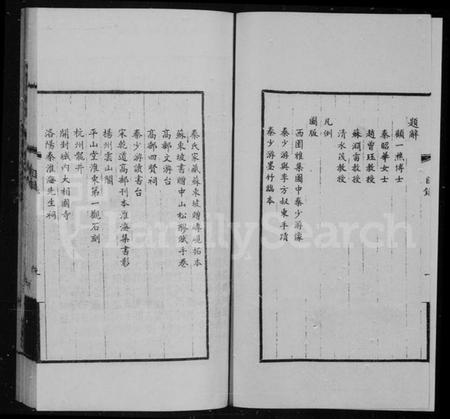 目錄
題解
顧一樵博士
秦昭華女士
趙曾珏教授
蘇淵雷教授
清水茂教授
凡例
圖版
西園雅集圖中秦少游像
秦少游與李方叔東手蹟
秦少游墨竹臨本
一
秦氏家藏蘇東坡贈 硯拓本
蘇東坡書贈中山松醪賦手卷
高郵文游台
高郵四賢祠
秦少游讀書台
宋乾道高郵刊本淮海集書影
揚州雲山閣
平山堂淮東第一觀石刻
杭州龍井
開封城內大相國寺
洛陽秦淮海先生祠
FamilySearch